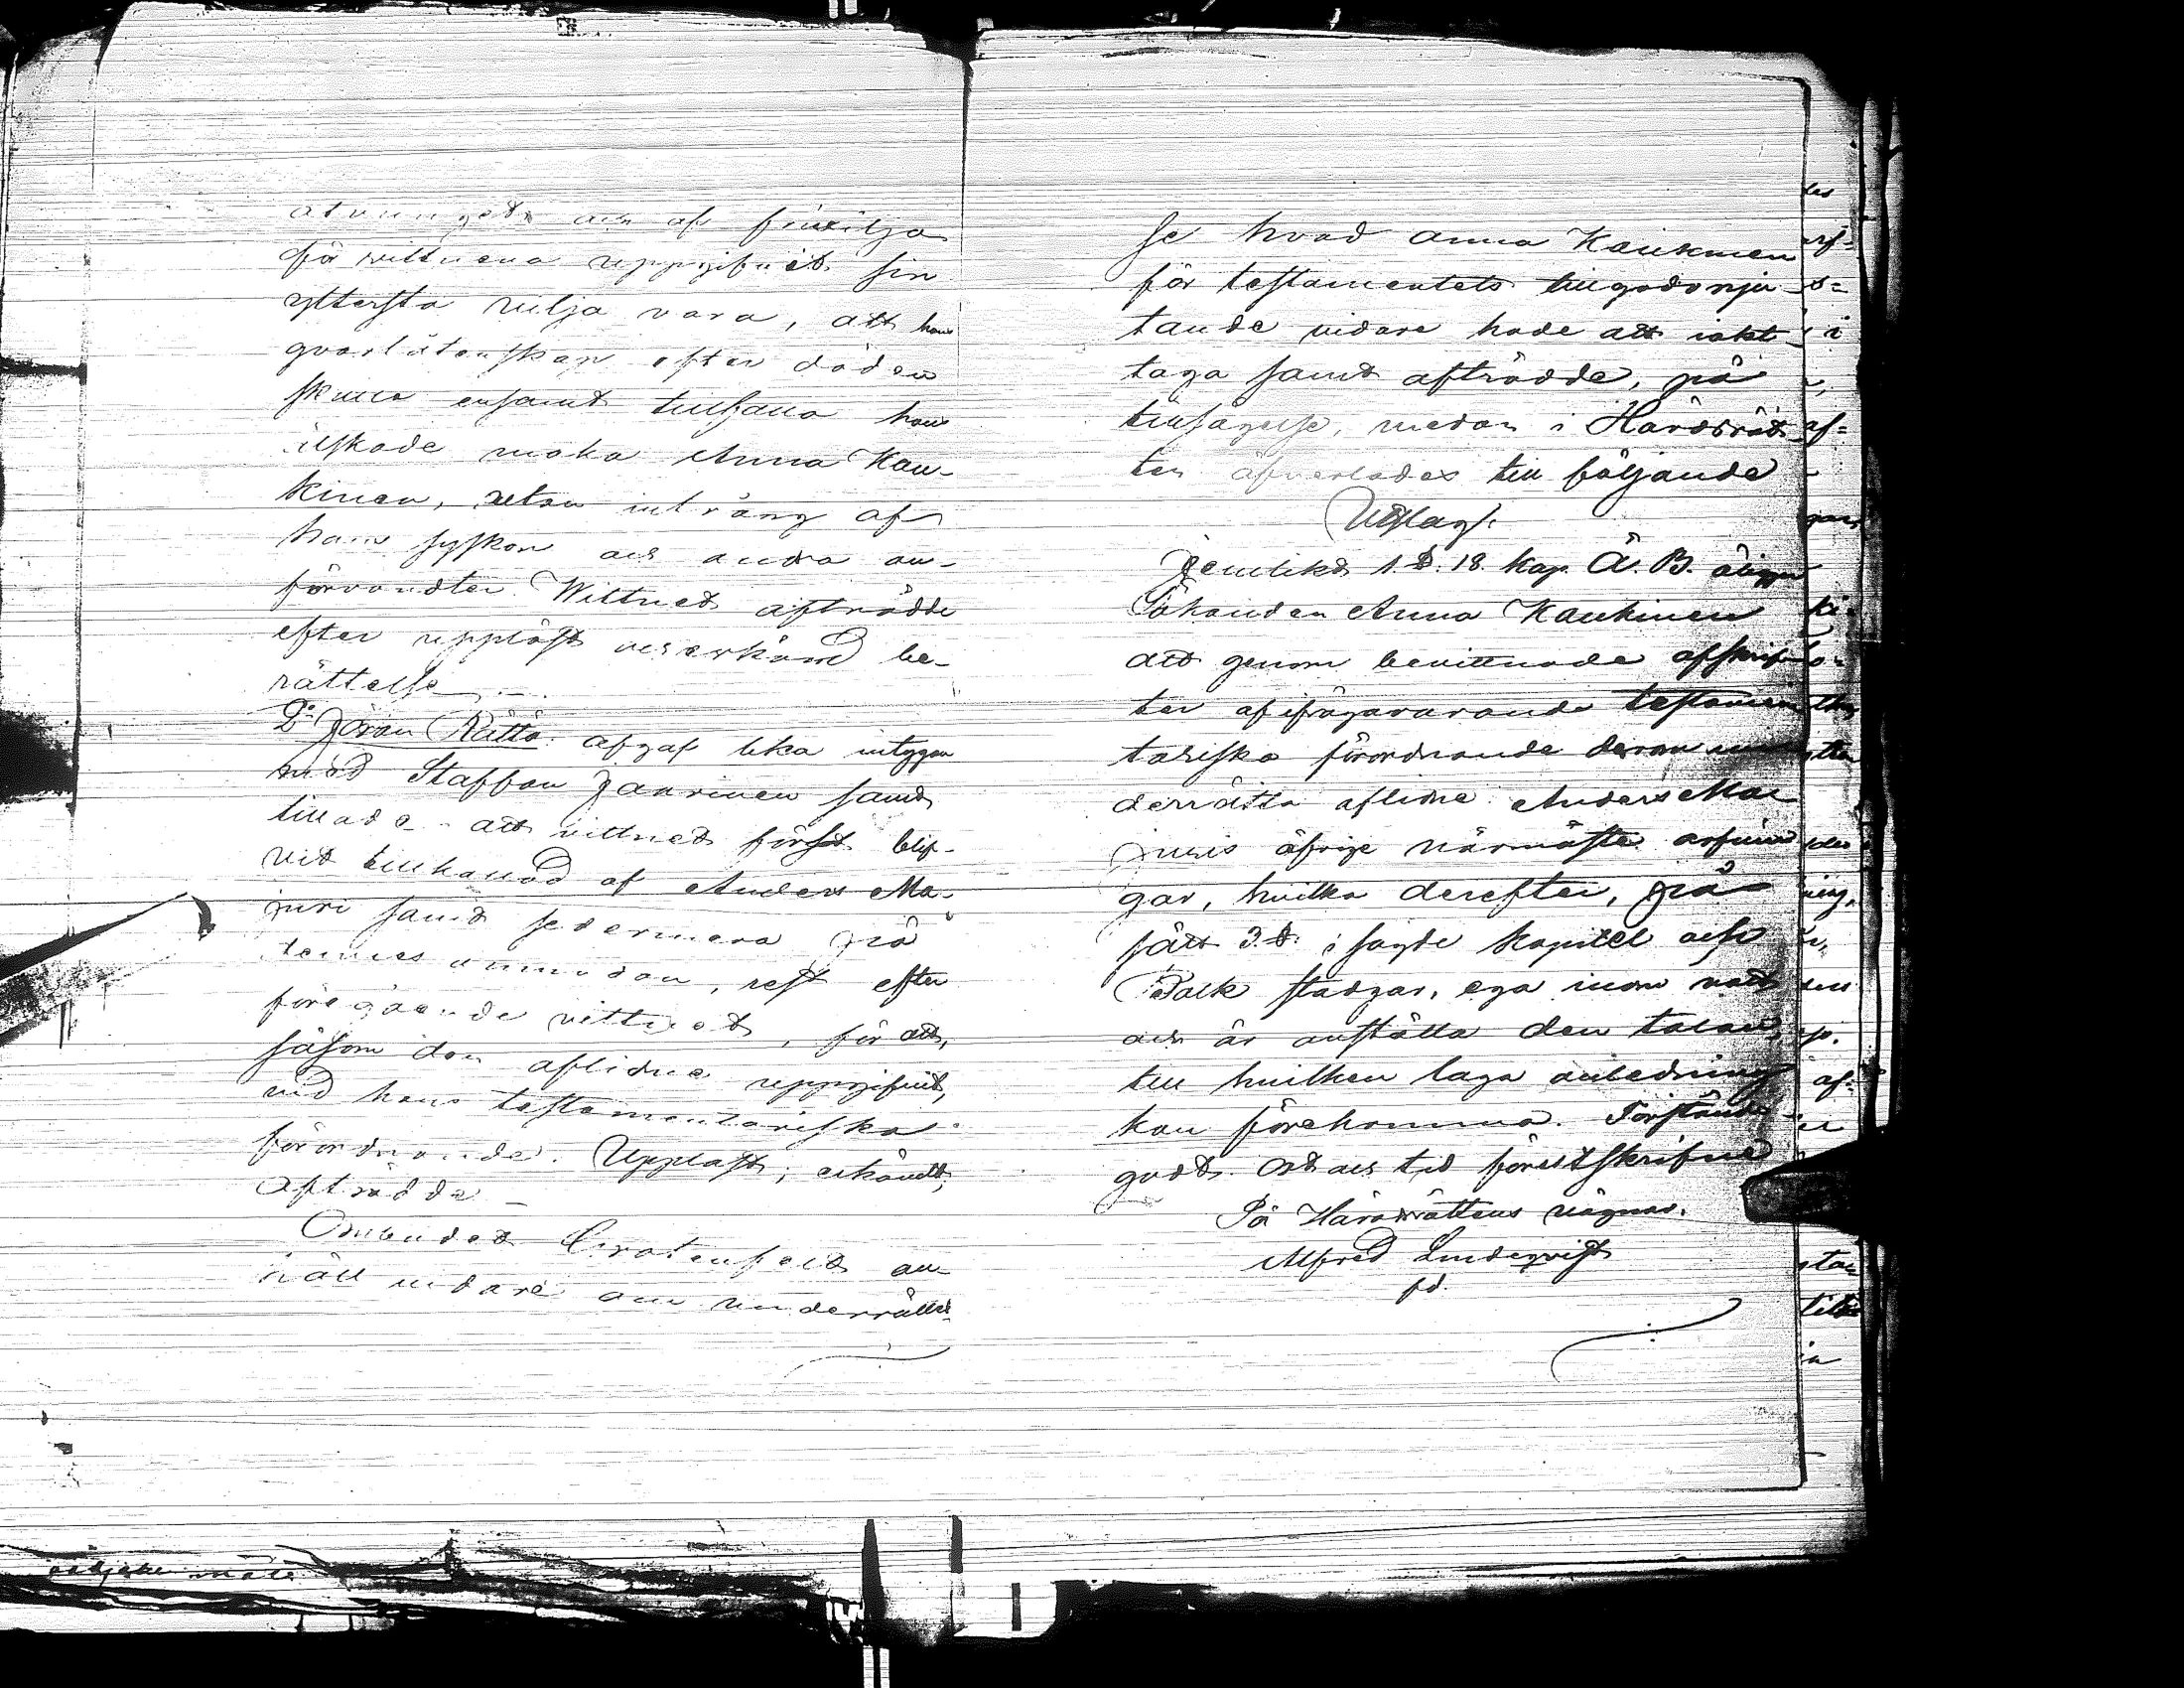 otvunget och af fri vilja
för vittnena uppgifvit sin
yttersta vilja vara, att hans
qvarlåtenskap efter döden
skulle ensamt tillfalla hans
älskade maka Anna Kau-
kinen, utan intrång af
hans syskon och andra an-
förvandter. Wittnet afträdde
efter uppläst och erkänd be-
rättelse.-
2o Jöran Rättö: afgaf lika intygan
med Staffan Jaarinen samt
tillade att vittnet först blif-
vit tillkallad af Anders Ma-
juri samt sedermera på
dennes anmodan, rest efter
föregående vittnet, för att,
såsom den aflidne uppgifvit,
vid hans testamentariska
förordnande. Uppläst; erkändt;
Afträdde.-
Ombudet Grotenfelt an-
höll vidare om underrättel-
se hvad Anna Kaukinen
för testamentets tillgodonju-
tande vidare hade att iakt-
taga samt afträdde, på
tillsägelse, medan i Härdsrät-
ten öfverlades till följande
Utslag:
Jemlikt 1. §. 18. Kap. Ä. B. åligger
Sökanden Anna Kaukinen
att genom bevittnade afskrif-
ter af ifrågavarande testamen-
tariska förordnande derom un-
derrätta aflidne Anders Ma-
juris öfrige närmaste arfvin-
gar, hvilka derefter, på
sätt 3. §. i sagde kapitel och
Balk stadgar, ega inom natt
och år anställa den talan,
till hvilken laga anledning
kan förekomma. Förstånde-
godt. Ort och tid förutskrifne
På Häradsrättens vägnar.
Alfred Lindeqvist
fd.